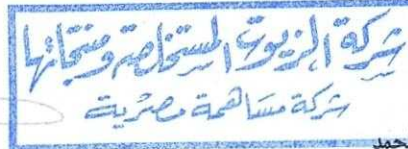 شركة الزيوت المستخلصة ومنتجاتها
شركة مساهمة مصرية
حمد